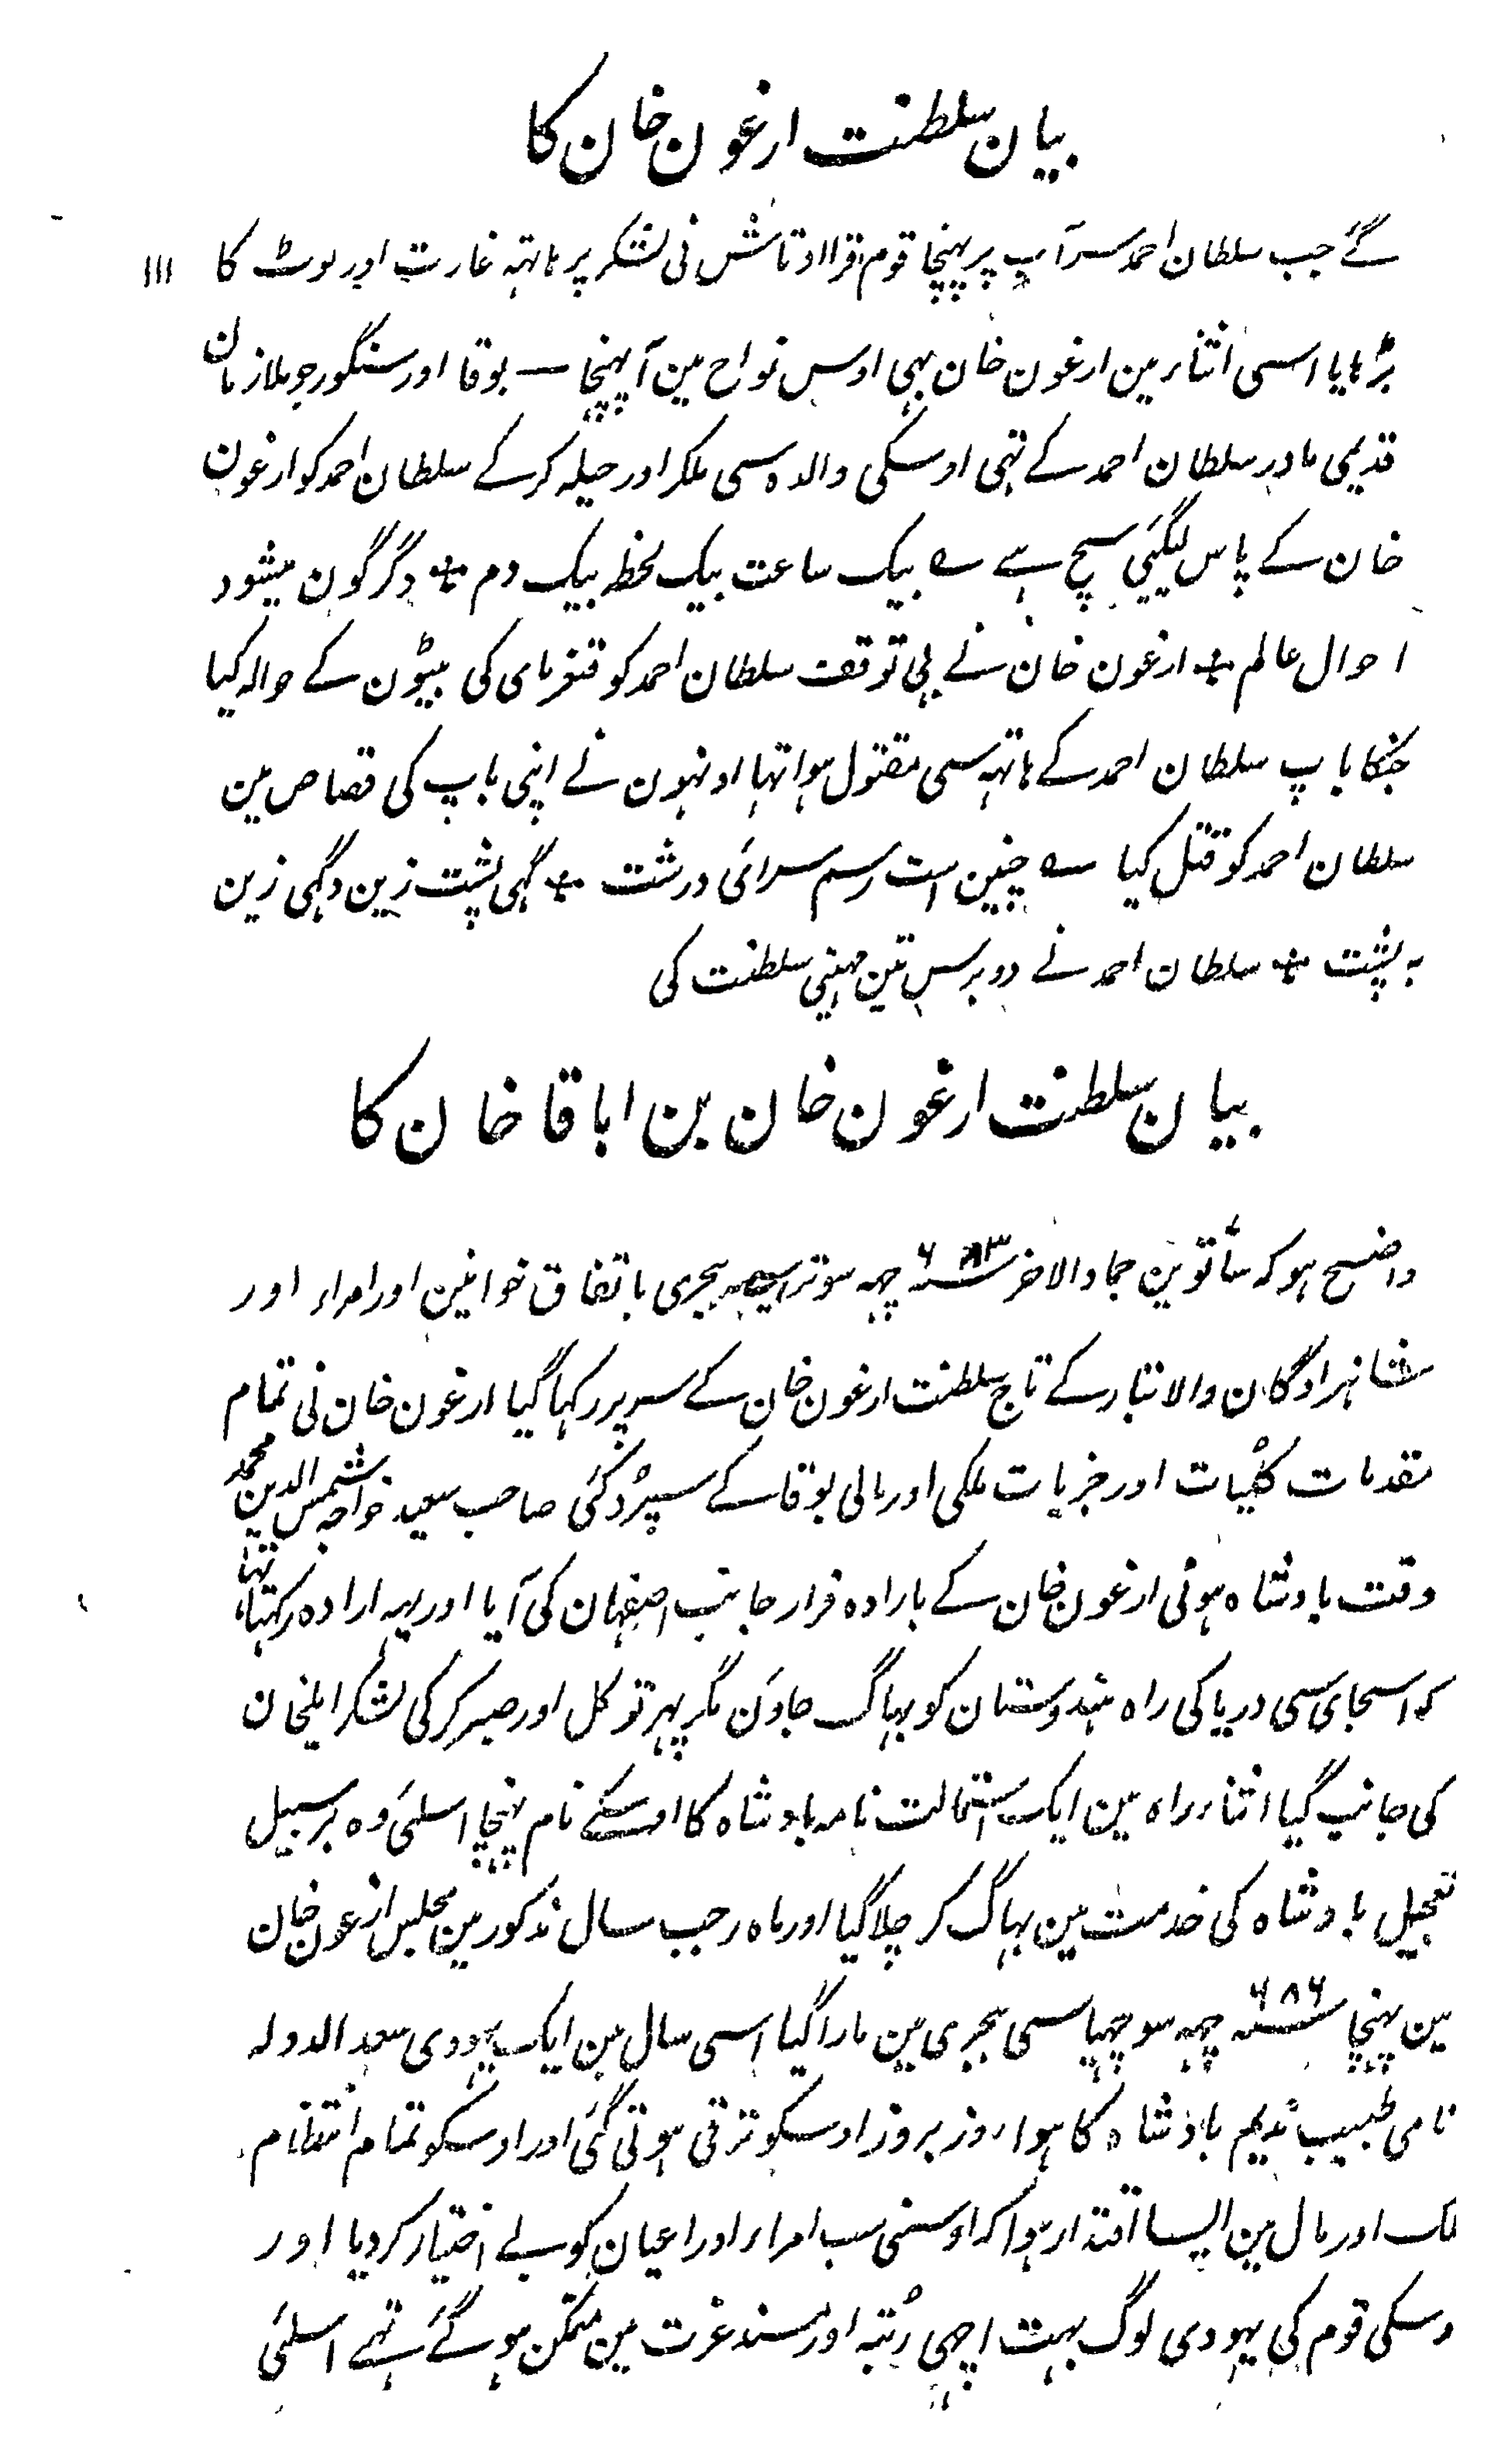 بیان سلطنت ارغون خان کا
گے جب سلطان احمد سرآب پر پہنچا قوم قراادتاش نی لشکر پر ہاتہہ غارت اور لوٹ کا ۱۱۱
بڑہایا اسی اثناء مین ارغون خان بہی اوس نواح مین آپہنچا — بوقا اور سنگور جو ملازمان
قدیمی مادر سلطان احمد کے تہی اوسکی والدہ سی ملکر اور حیلہ کرکے سلطان احمد کو ارغون
خان کے پاس لیگیٔ سچ ہے ؎ بیک ساعت بیک لحظہ بیک دم ٭ دگرگون میشود
احوال عالم ٭ ارغون خان نے بی توقف سلطان احمد کو قنغرمای کی بیٹون کے حوالہ کیا
جنکا باپ سلطان احمد کے ہاتہہ سی مقتول ہوا تہا اونہون نے اپنی باپ کی قصاص مین
سلطان احمد کو قتل کیا ؎ چنین است رسم سرائی درشت ٭ گہی پشت زین و گہی زین
بہ پشت ٭ سلطان احمد نے دو برس تین مہینی سلطنت کی
بیان سلطنت ارغون خان بن اباقا خان کا
واضح ہو کہ ساتوین جماد الاخر ۶۸۳؁ چہہ سو تراسیہ ہجری باتفاق خوانین اور امراء اور
شاہزادگان والاتبار کے تاج سلطنت ارغون خان کے سر پر رکہا گیا ارغون خان نی تمام
مقدمات کلیات اور جزیات ملکی اور مالی بوقا کے سپرد کئی صاحب سعید خواجہ شمس الدین محمد
وقت بادشاہ ہونی ارغون خان کے بارادہ فرار جانب اصفہان کی آیا اور یہہ ارادہ رکہتا تہا
کہ اسجای سی دریا کی راہ ہندوستان کو بہاگ جاون مگر پہر توکل اور صبر کرکی لشکر ایلخان
کی جانب گیا اثناء راہ مین ایک استمالت نامہ بادشاہ کا اوسکے نام پہنچا اسلیٔ وہ برسبیل
تعجیل بادشاہ کی خدمت مین بہاگ کر چلا گیا اور ماہ رجب سال مذکور مین مجلس ارغون خان
مین پہنچا ۶۸۶؁ چہہ سو چہیاسی ہجری مین مارا گیا اسی سال مین ایک یہودی سعد الدولہ
نامی طبیب ندیم بادشاہ کا ہوا روز بروز اوسکو ترقی ہوتی گئی اور اوسکو تمام انتظام
ملک اور مال مین ایسا اقتدار ہوا کہ اوسنی سب امراء اور اعیان کو بے اختیار کردیا اور
وسکی قوم کی یہودی لوگ بہت اچہی رتبہ اور مسند عزت مین متمکن ہو گئے تہے اسلیٔ